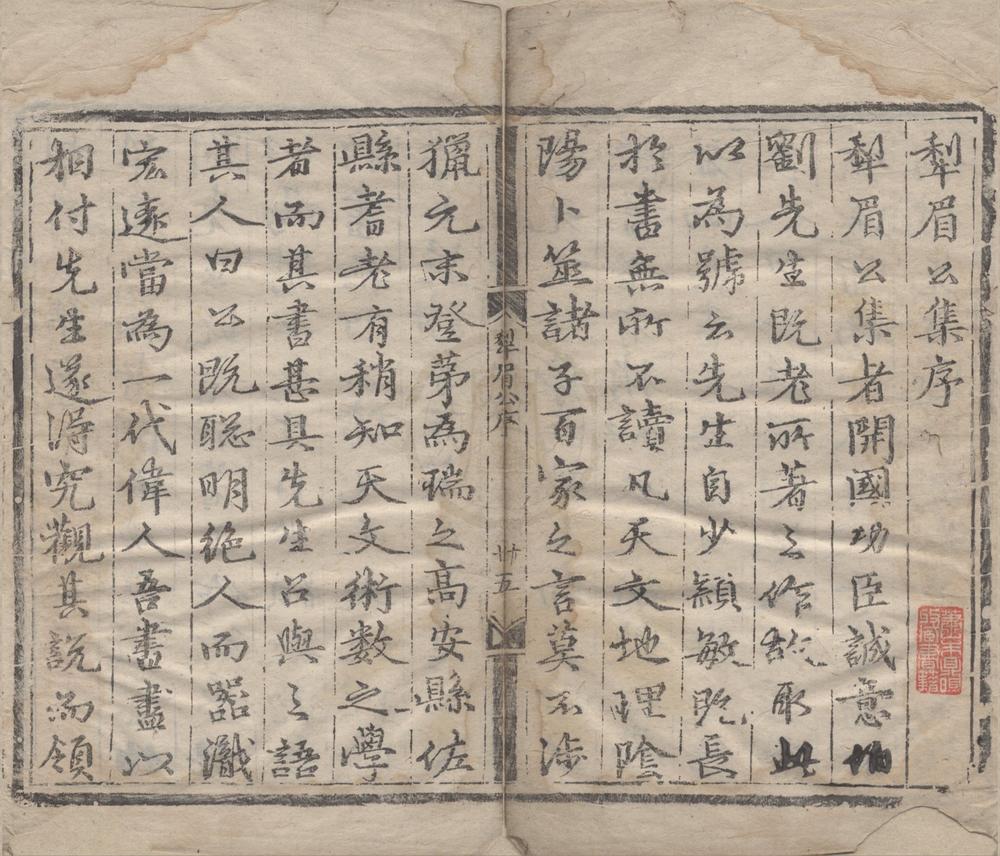 犁眉公集序
犁眉公集者開國功臣誠意伯
劉先生既老所著之作故取此
以為號云先生自少穎敏既長
於書無所不讀凡天文地理陰
陽卜筮諸子百家之言莫不涉
犁眉公序
廿五
獵元末登苐為瑞之高安縣佐
縣耆老有稍知天文術數之學
者而其書甚具先生召與之語
其人曰公既聡明絶人而器識
宏遠當為一代偉人吾書盡以
相付先生遂得究觀其說而領